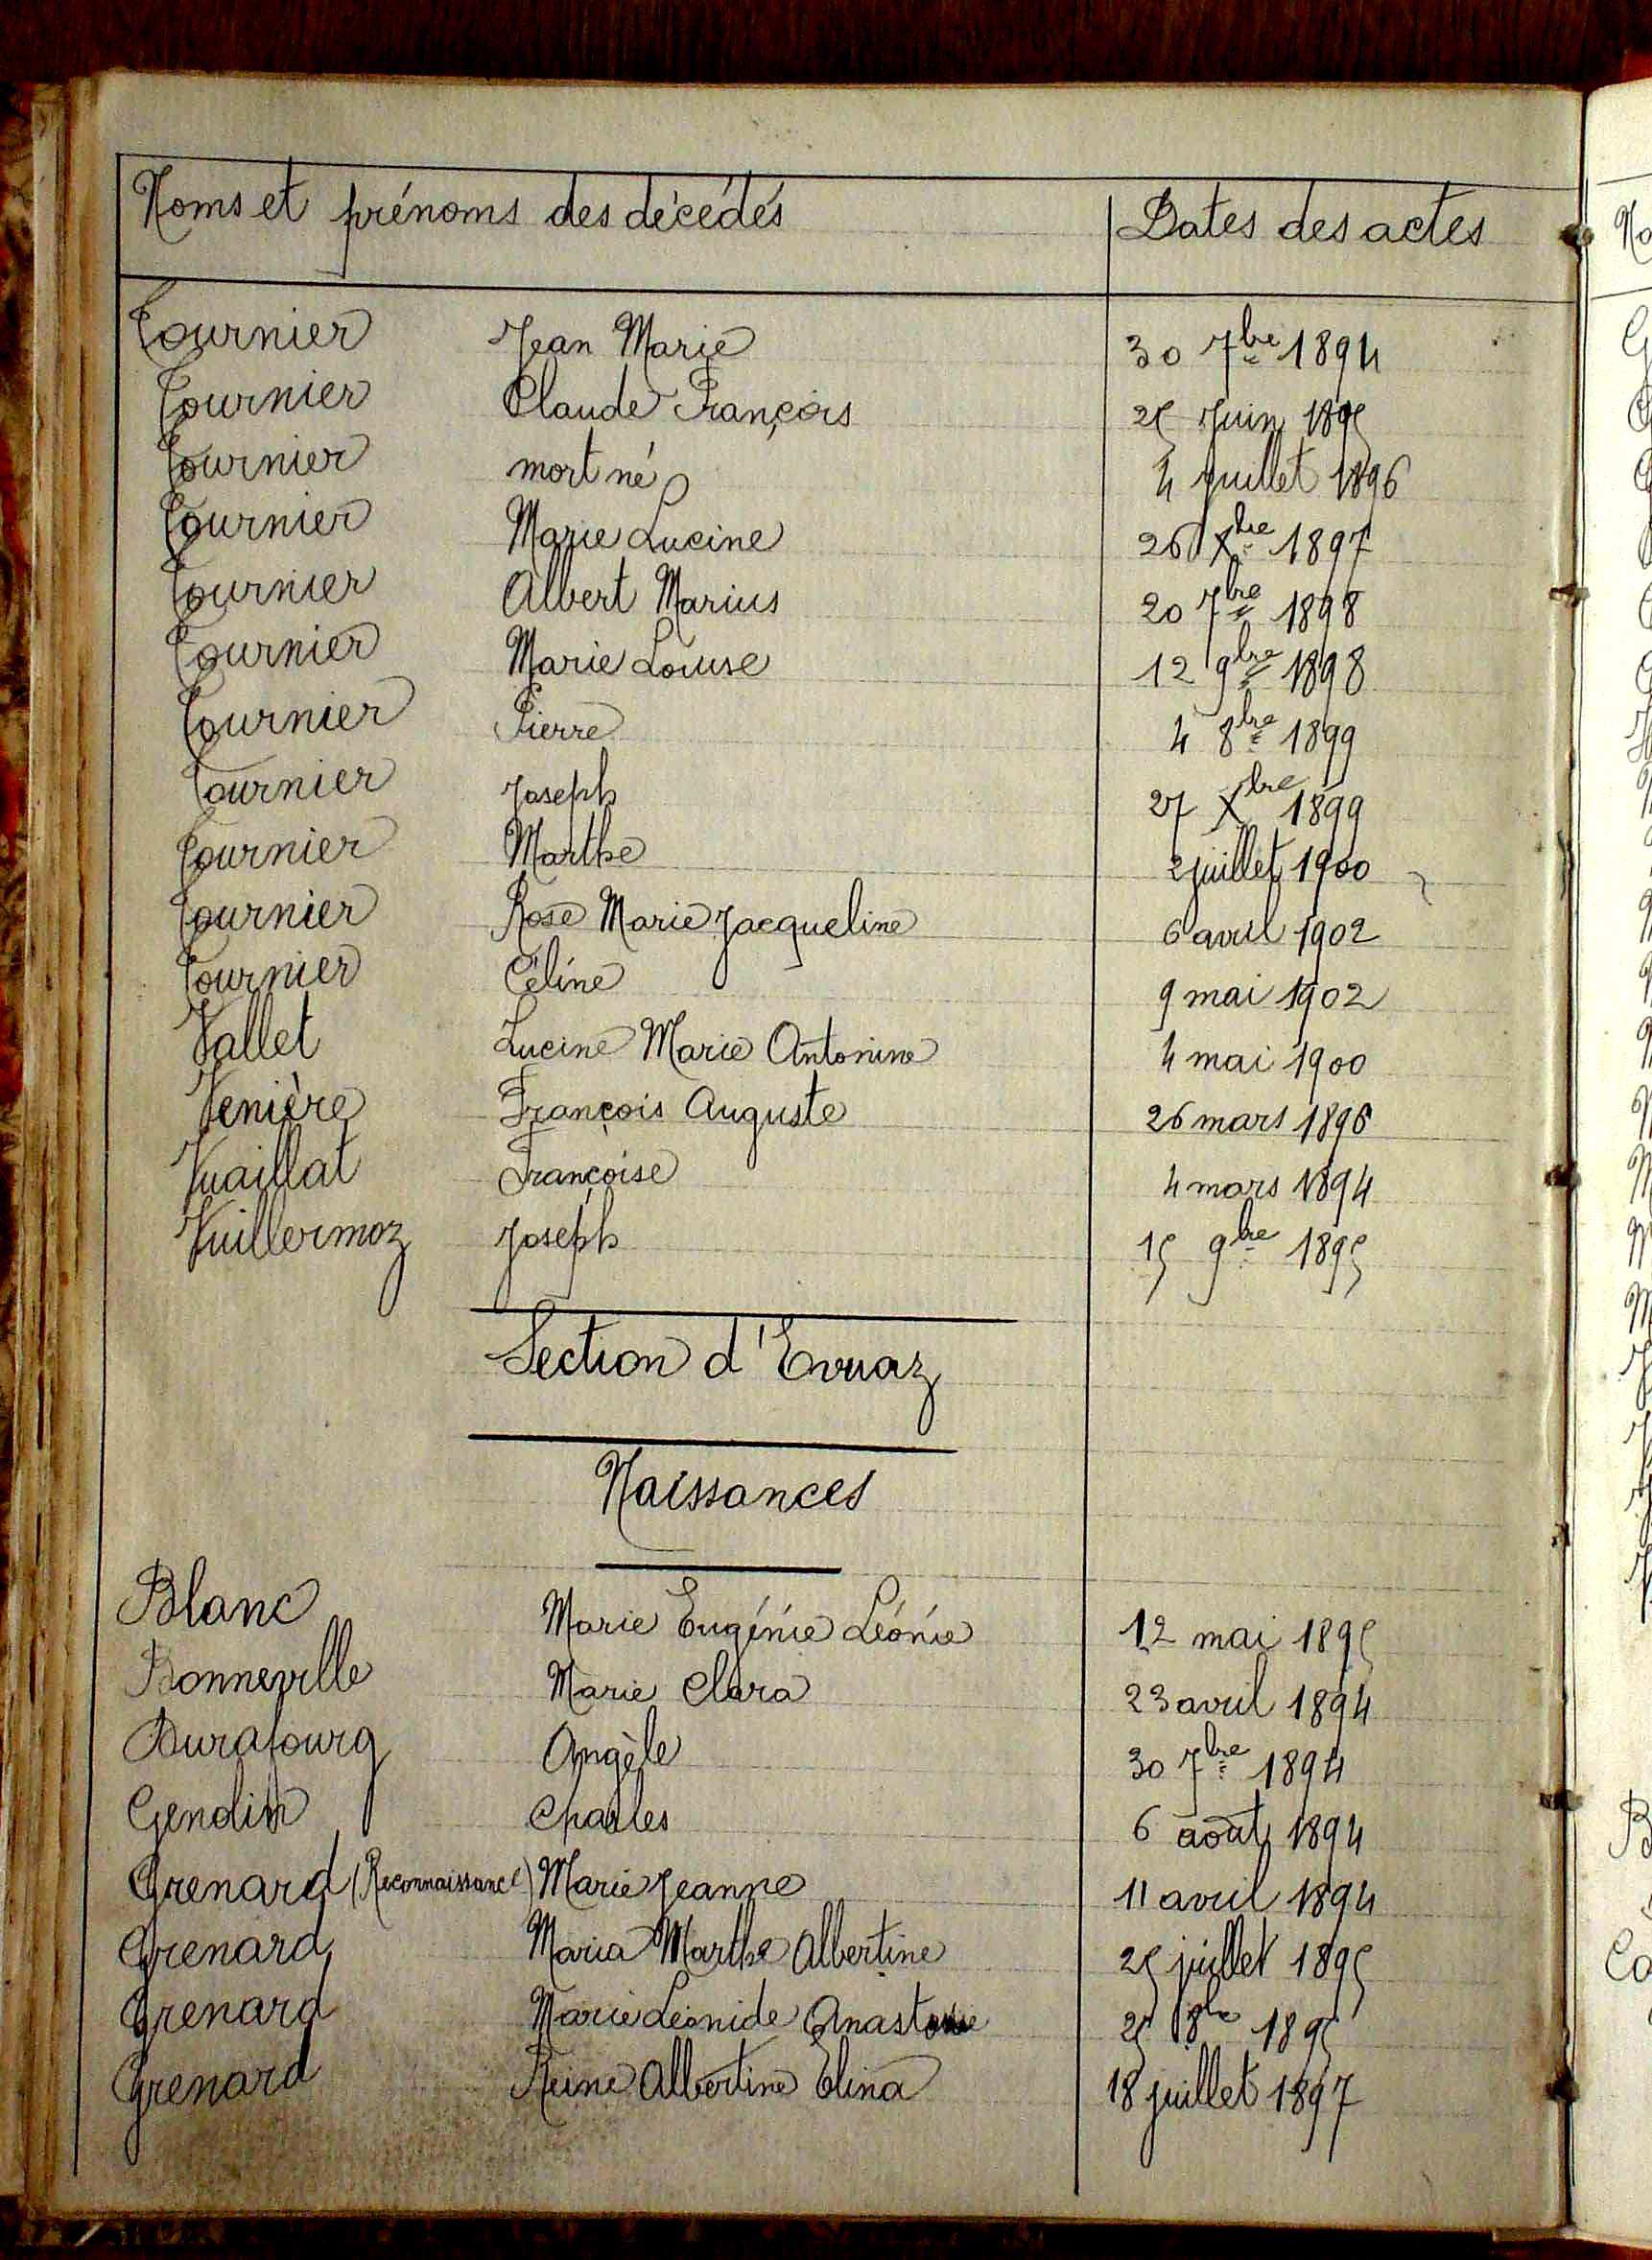 Noms et prénoms des décédés Dates des actes
Tournier Jean Marie 30 7bre 1894
Tournier Claude François 25 Juin 1895
Tournier mort né 4 juillet 1896
Tournier Marie Lucine 26 Xbre 1897
Tournier Albert Marius 20 7bre 1898
Tournier Marie Louise 12 9bre 1898
Tournier Pierre 4 8bre 1899
Tournier Joseph 27 Xbre 1899
Tournier Marthe 2 juillet 1900
Tournier Rose Marie Jacqueline 6 avril 1902
Tournier Céline 9 mai 1902
Vallet Lucine Marie Antonine 4 mai 1900
Venière François Auguste 26 mars 1896
Vuaillat Françoise 4 mars 1894
Vuillermoz Joseph 15 9bre 1895
Section d'Evuaz
Naissances
Blanc Marie Eugénie Léonie 12 mai 1895
Bonneville Marie Clara 23 avril 1894
Durafourg Angèle 30 7bre 1894
Gendin Charles 6 août 1894
Grenard (Reconnaissance) Marie Jeanne 11 avril 1894
Grenard Maria Marthe Albertine 25 juillet 1895
Grenard Marie Léonide Anastasie 25 8bre 1895
Grenard Reine Albertine Elina 18 juillet 1897